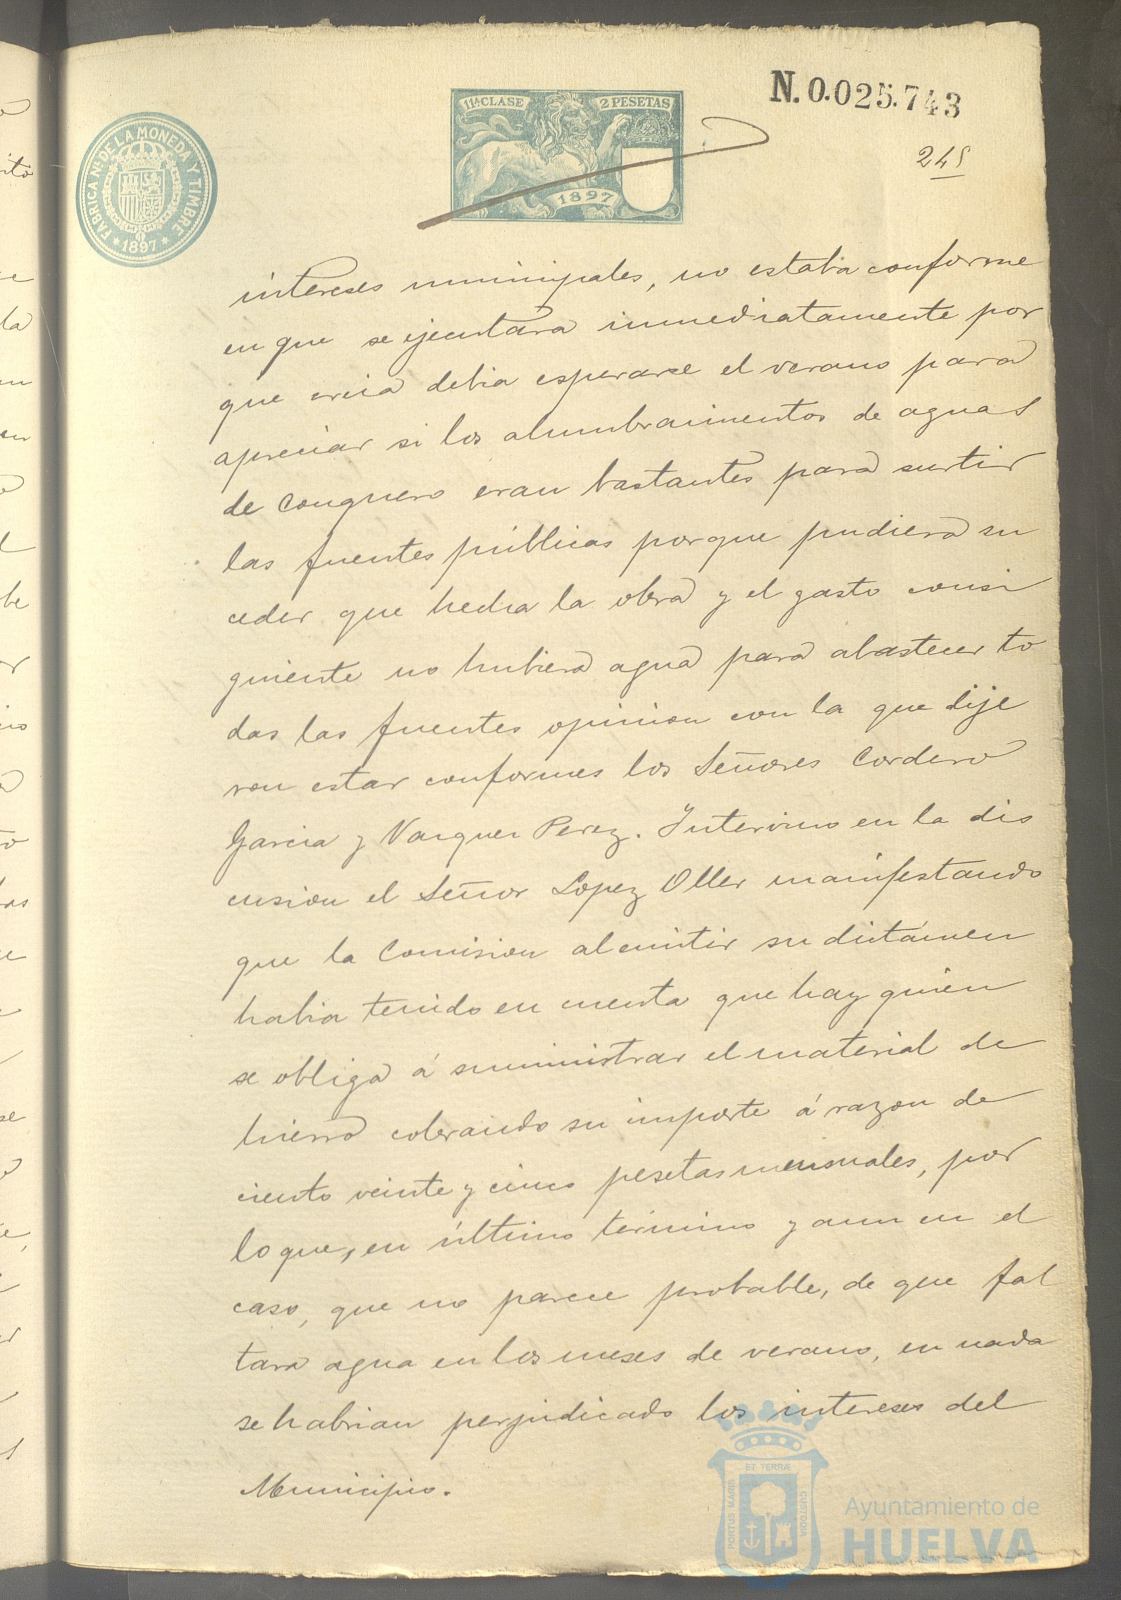 N. 0.025.743
11ª CLASE 2 PESETAS
1897
FABRICA Nl. DE LA MONEDA Y TIMBRE
* 1897 *
245
intereses municipales, no estaba conforme
en que se ejecutára inmediatamente por
que creia debia esperarse el verano para
apreciar si los alumbramientos de aguas
de Conquero eran bastantes para surtir
las fuentes públicas porque pudiera su
ceder que hecha la obra y el gasto consi
guiente no hubiera agua para abastecer to
das las fuentes opinion con la que dije
ron estar conformes los Señores Cordero
Garcia y Vazquez Perez. Intervino en la dis
cusion el Señor Lopez Oller manifestando
que la Comision al emitir su dictámen
habia tenido en cuenta que hay quien
se obliga á suministrar el material de
hierro cobrando su importe á razon de
ciento veinte y cinco pesetas mensuales, por
lo que, en último término y aun en el
caso, que no parece probable, de que fal
tara agua en los meses de verano, en nada
se habrian perjudicado los intereses del
Municipio.
PORTUS MARIS ET TERRÆ CUSTODIA
Ayuntamiento de
HUELVA